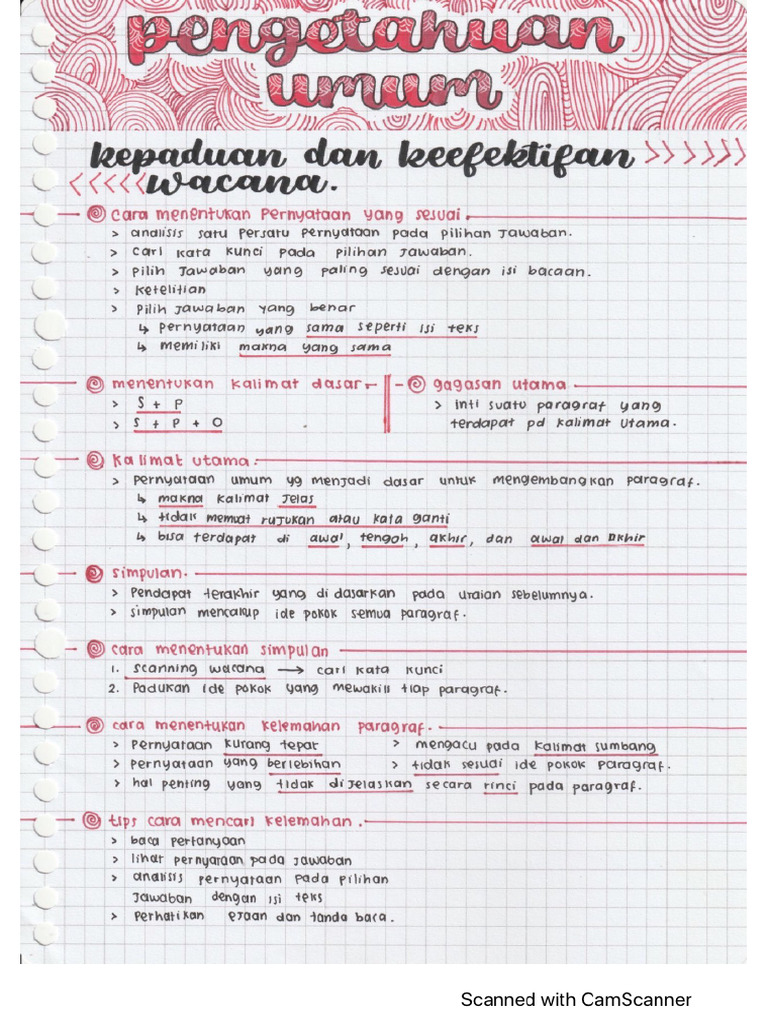 pengetahuan
umum
kepaduan dan keefektifan
wacana.
cara menentukan pernyataan yang sesuai.
> analisis satu persatu pernyataan pada pilihan jawaban.
> cari kata kunci pada pilihan jawaban.
> pilih jawaban yang paling sesuai dengan isi bacaan.
> ketelitian
> pilih jawaban yang benar
↳ pernyataan yang sama seperti isi teks
↳ memiliki makna yang sama
menentukan kalimat dasar
> S + P
> S + P + O
gagasan utama
> inti suatu paragraf yang
terdapat pd kalimat utama.
kalimat utama.
> pernyataan umum yg menjadi dasar untuk mengembangkan paragraf.
↳ makna kalimat jelas
↳ tidak memuat rujukan atau kata ganti
↳ bisa terdapat di awal, tengah, akhir, dan awal dan akhir
simpulan.
> Pendapat terakhir yang di dasarkan pada uraian sebelumnya.
> simpulan mencakup ide pokok semua paragraf.
cara menentukan simpulan
1. scanning wacana → cari kata kunci
2. Padukan ide pokok yang mewakili tiap paragraf.
cara menentukan kelemahan paragraf.
> pernyataan kurang tepat
> pernyataan yang berlebihan
> hal penting yang tidak dijelaskan secara rinci pada paragraf.
> mengacu pada kalimat sumbang
> tidak sesuai ide pokok paragraf.
tips cara mencari kelemahan.
> baca pertanyaan
> lihat pernyataan pada jawaban
> analisis pernyataan pada pilihan
jawaban dengan isi teks
> perhatikan ejaan dan tanda baca.
Scanned with CamScanner